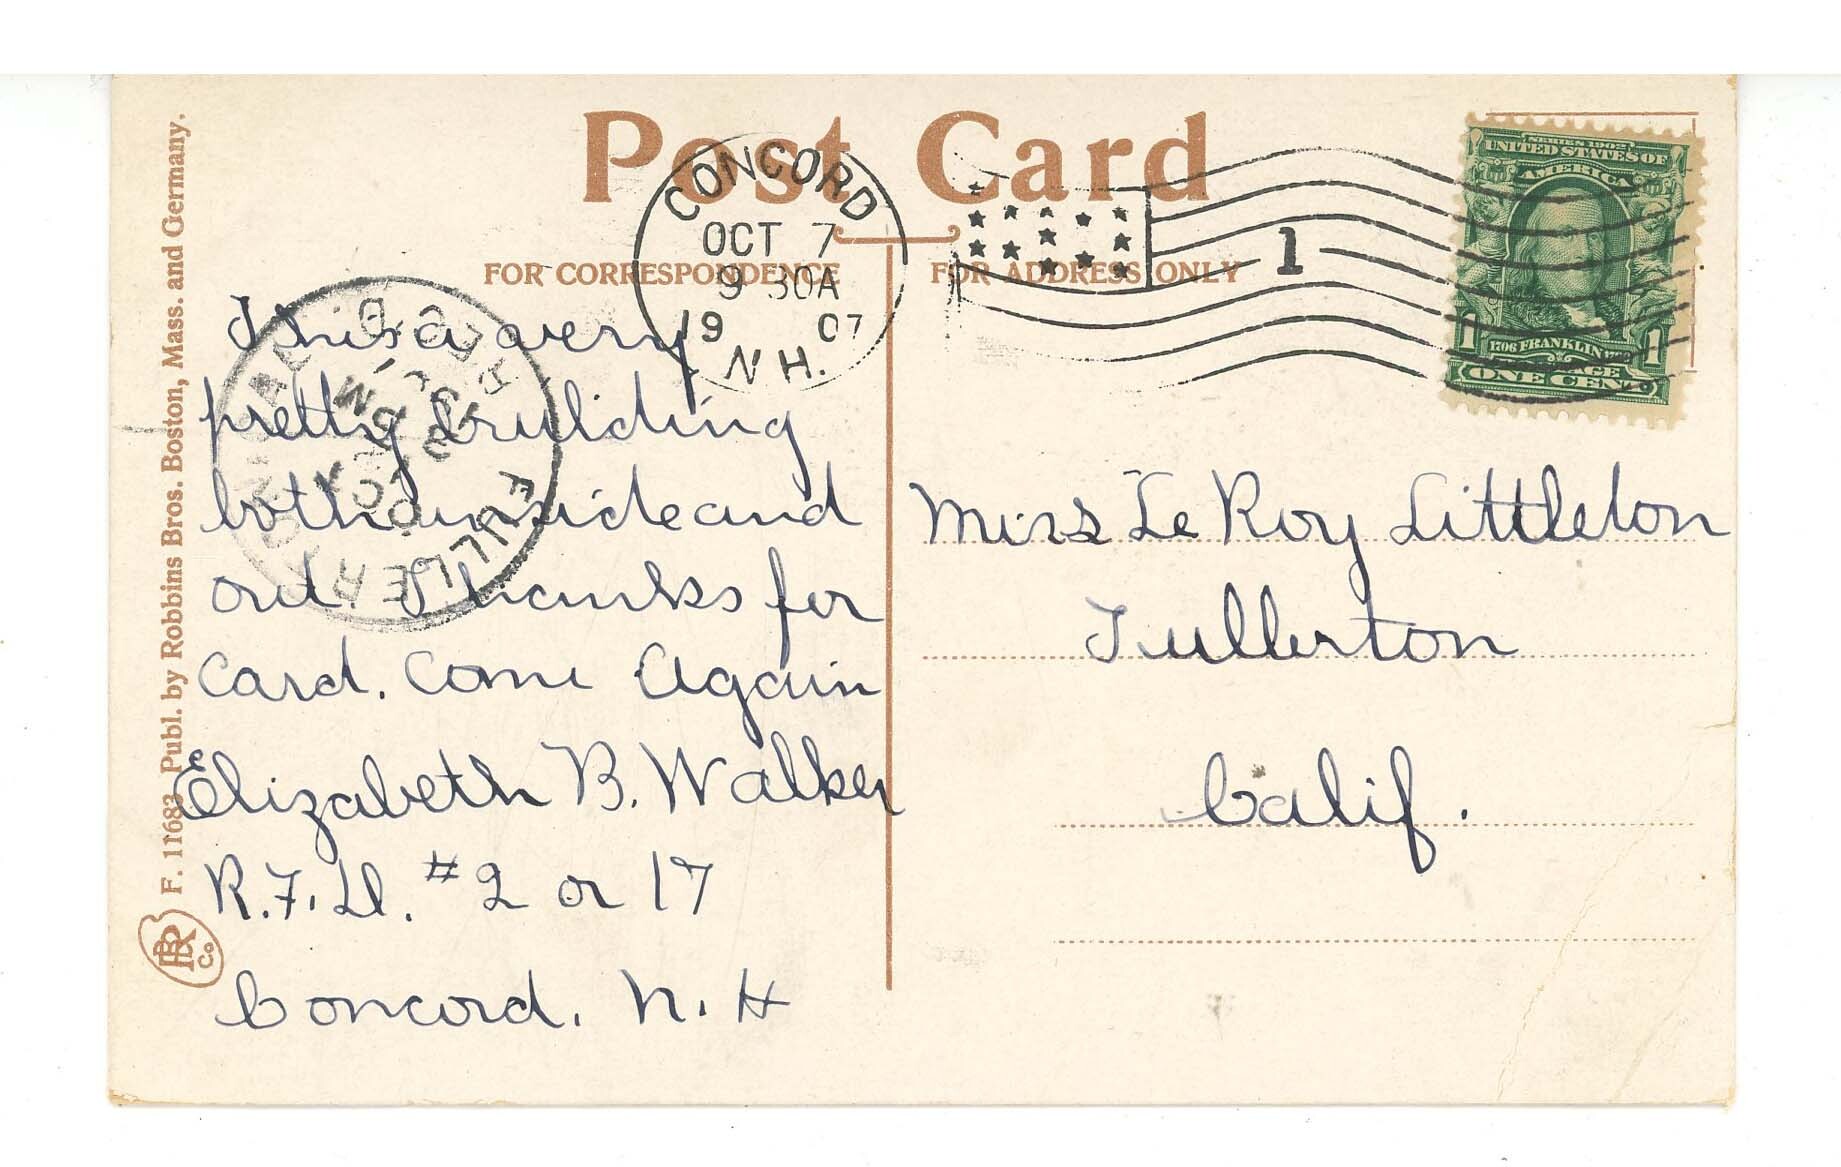 Post Card
FOR CORRESPONDENCE
FOR ADDRESS ONLY
CONCORD
OCT 7
9 30A
19 07
N.H.
1
SERIES 1902
UNITED STATES OF
AMERICA
1 1706 FRANKLIN 1790 1
POSTAGE
ONE CENT
FULLERTON
REC'D
OCT
This is a very
pretty building
both inside and
out. Thanks for
card. Come Again
Elizabeth B. Walker
R.F.D. #2 or 17
Concord. N.H
Miss Le Roy Littleton
Fullerton
Calif.
F. 11683 Publ. by Robbins Bros. Boston, Mass. and Germany.
RB Co